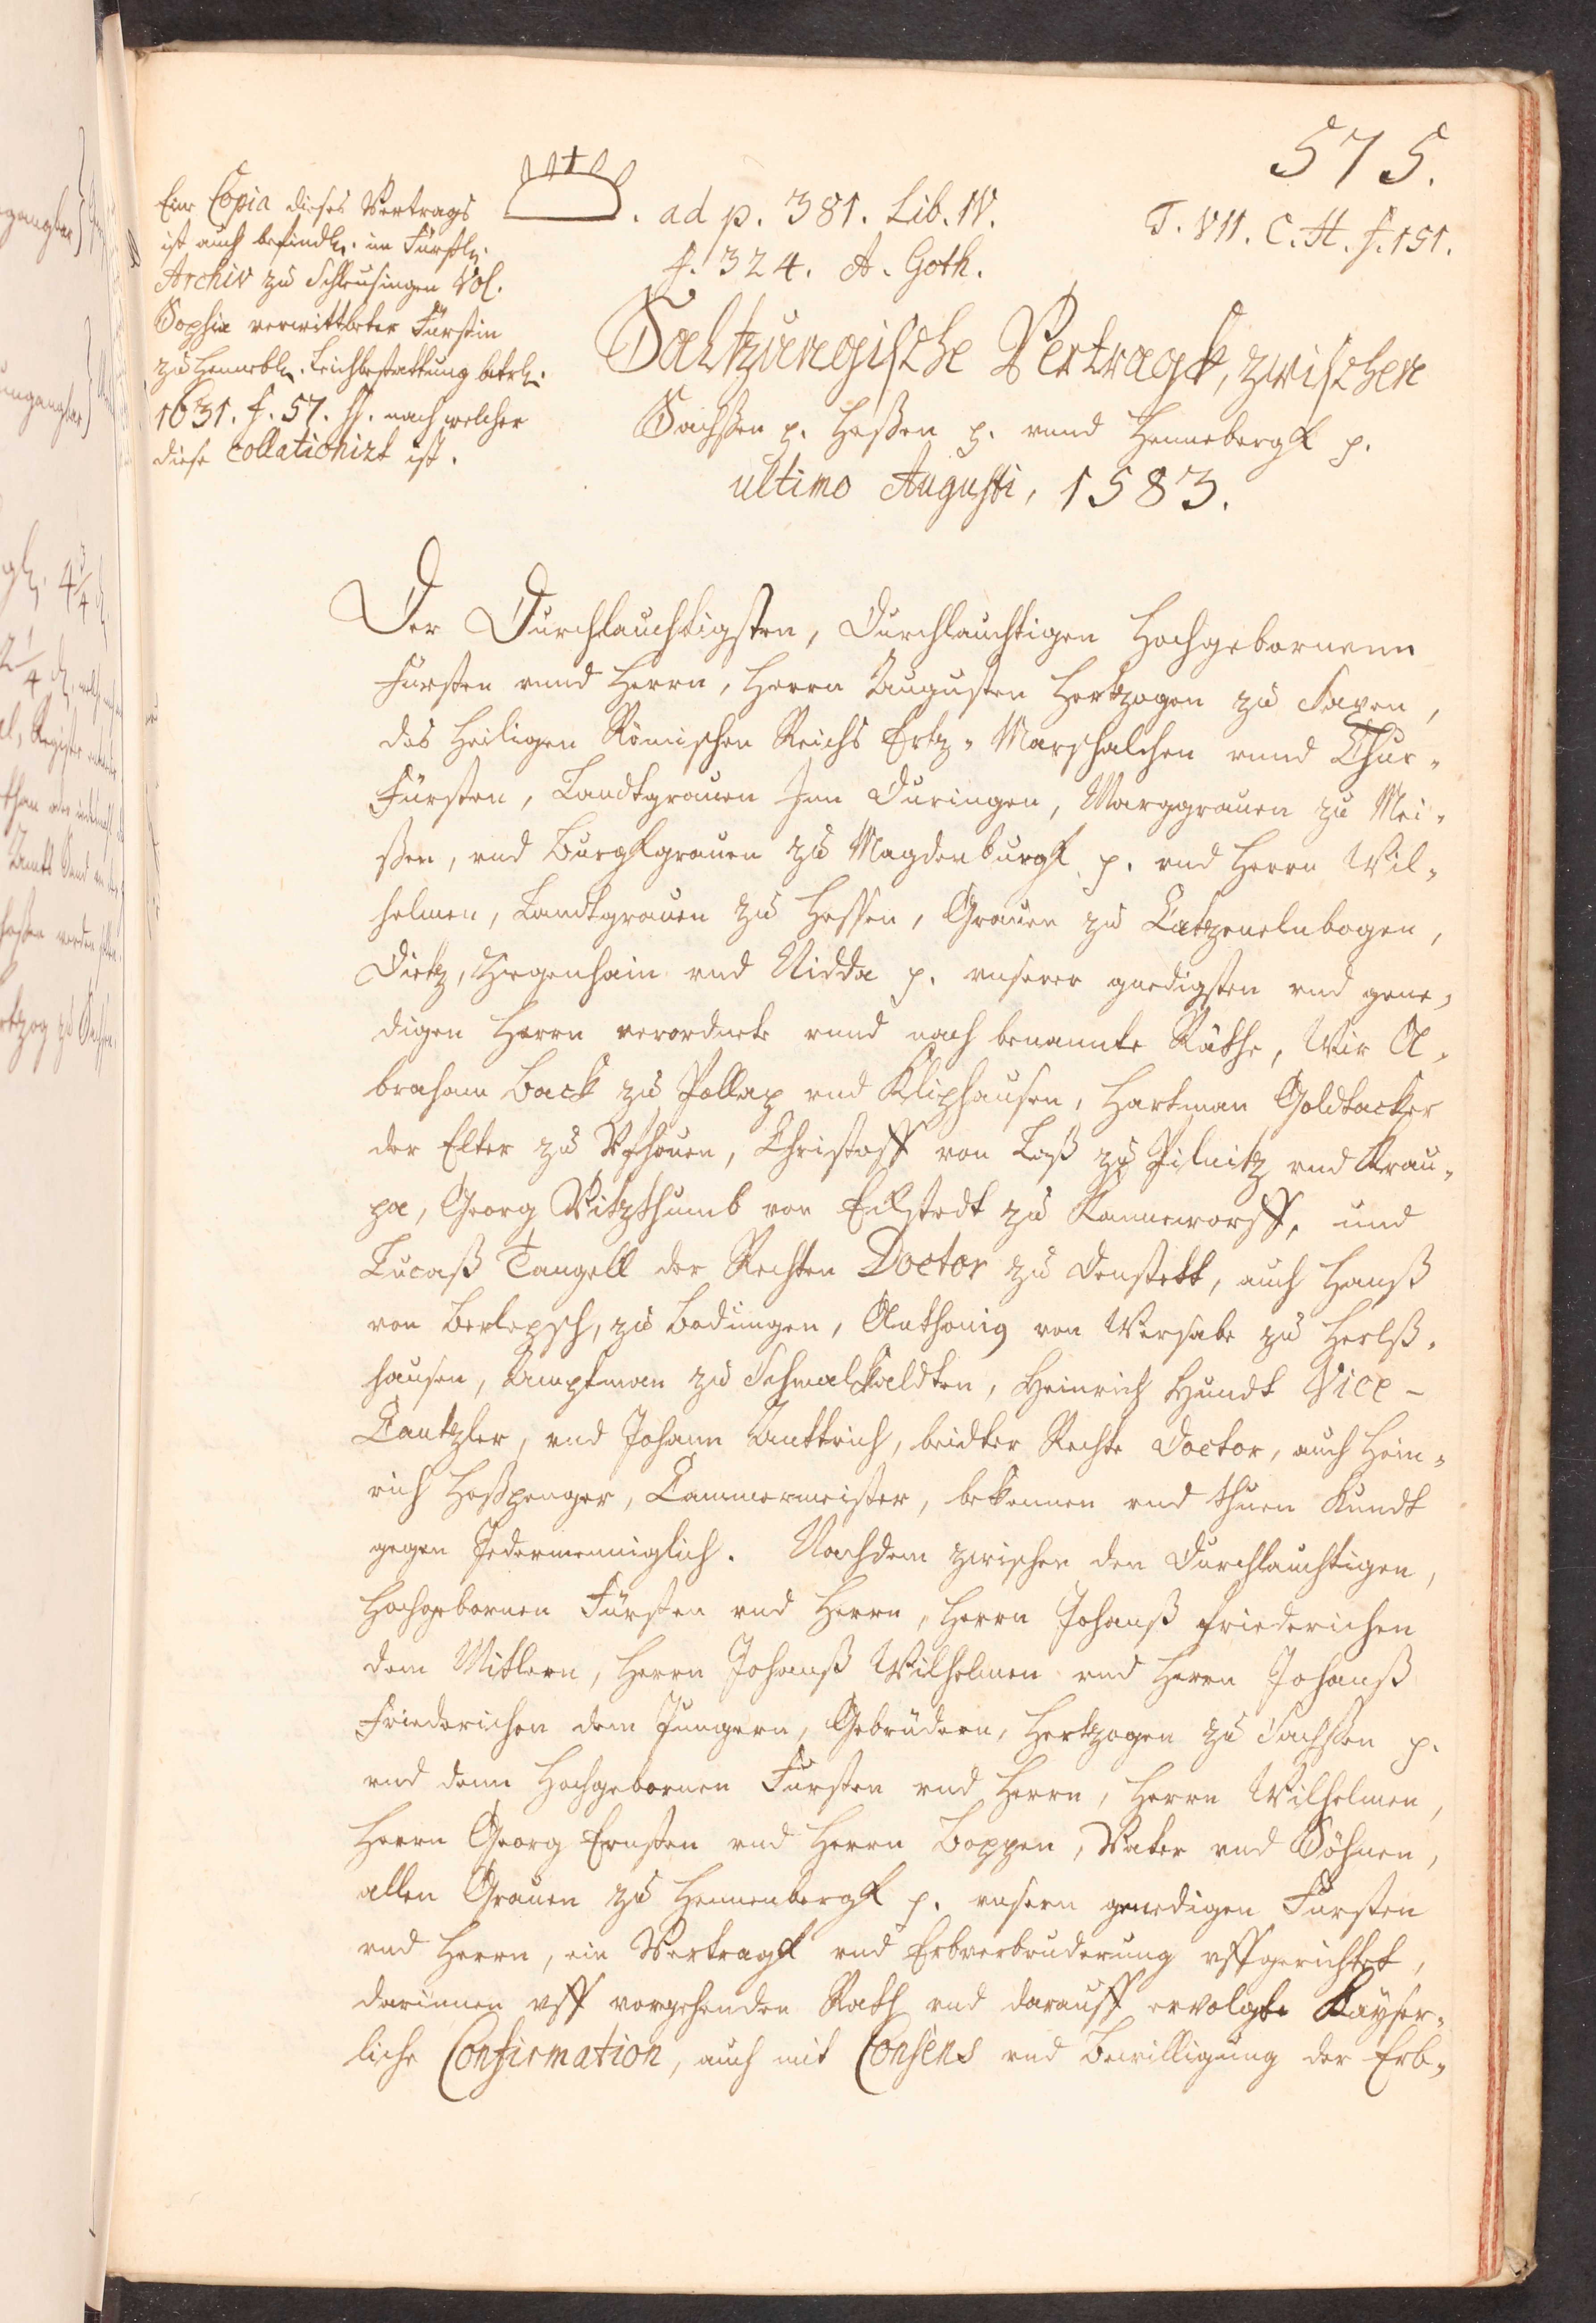 575.
Eine Copia dieses Vertrags
ist auch befindl. im Fürstl.
Archiv zu Schleusingen Vol.
Sophia verwittbeter Fürstin
zu Hennebl. Leichbestattung betrl.
1631. f. 57. ff. nach welcher
diese collationirt ist.
. ad p. 381. Lib. IV.
f. 324. A. Goth.
T. VII. C. H. f. 151.
Saltzungische Vertragk, zwischen
Sachßen p. Heßen p. vnnd Hennebergk p.
ultimo Augusti, 1583.
Der Durchlauchtigsten, Durchlauchtigen Hochgebornenn
Fursten vnnd Herrn, Herrn Augusten Hertzogen zu Saxen,
des Heiligen Römischen Reichs Ertz-Marschalchen vnnd Chur-
Fürsten, Landtgrauen Inn Duringen, Marggrauen zu Mei-
ßen, vnd Burgkgrauen zu Magdenburgk p. vnd Herrn Wil-
helmen, Landtgrauen zu Hessen, Grauen zu Catzenelnbogen,
Dietz, Ziegenhain vnd Nidda p. vnserer gnedigsten vnd gene-
digen Herrn verordnete vnnd nach benannte Räthe, Wir A-
braham Bock zu Pollag vnd Kliphausen, Hartman Goldtacker
der Elter zu Vfhouen, Christoff von Loß zu Pilnitz vnd Krau-
pa, Georg Vitzthumb von Eckstedt zu Kannewurff, und
Lucaß Tangell der Rechten Doctor zu Denstett, auch Hanß
von Berlepsch, zu Bodungen, Anthonig von Wersabe zu Herlß-
hausen, Amptman zu Schmalkaldten, Heinrich Hundt Vice-
Cantzler, vnd Johann Anttrich, beidter Rechte Doctor, auch Hein-
rich Hoßpenger, Cammermeister, bekennen vnd thuen Kundt
gegen Jedermenniglich. Nachdem zwischen den Durchlauchtigen,
Hochgebornen Fürsten vnd Herrn, Herrn Johanß Friederichen
dem Mitlern, Herrn Johanß Wilhelmen vnd Herrn Johanß
Friederichen dem Jungern, Gebrüdern, Hertzogen zu Sachßen p.
vnd denn Hochgebornen Fursten vnd Herrn, Herrn Wilhelmen,
Herrn Georg Ernsten vnd Herrn Boppen, Vater vnd Söhnen,
allen Grauen zu Hennenbergk p. vnsern genedigen Fursten
vnd Herrn, ein Vertragk vnd Erbverbruderung vffgerichtet,
darinnen vff vorgehenden Rath vnd darauff ervolgte Kayser-
liche Confirmation, auch mit Consens vnd Bewilligung der Erb-